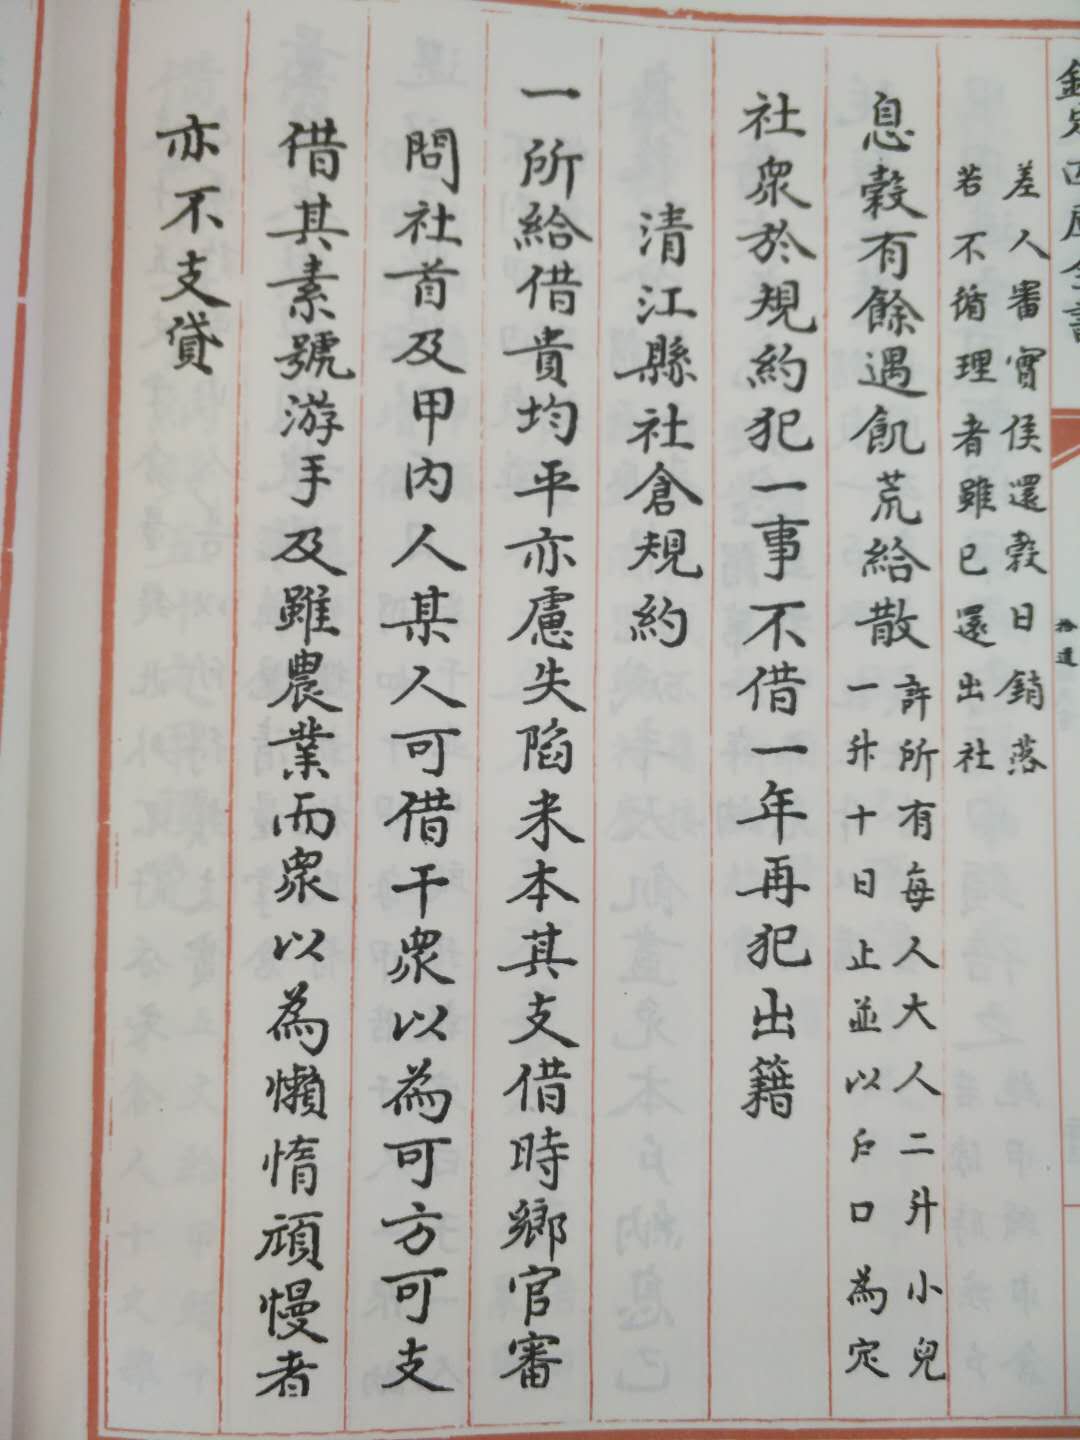 欽定四庫全書
拾遺
差人審實侯還穀日銷落
若不循理者雖已還出社
息穀有餘遇飢荒給散許所有每人大人二升小兒
一升十日止並以户口為定
社衆於規約犯一事不借一年再犯出籍
清江縣社倉規約
一所給借貴均平亦慮失陷米本其支借時鄉官審
問社首及甲內人某人可借干衆以為可方可支
借其素號游手及雖農業而衆以為懶惰頑慢者
亦不支貸